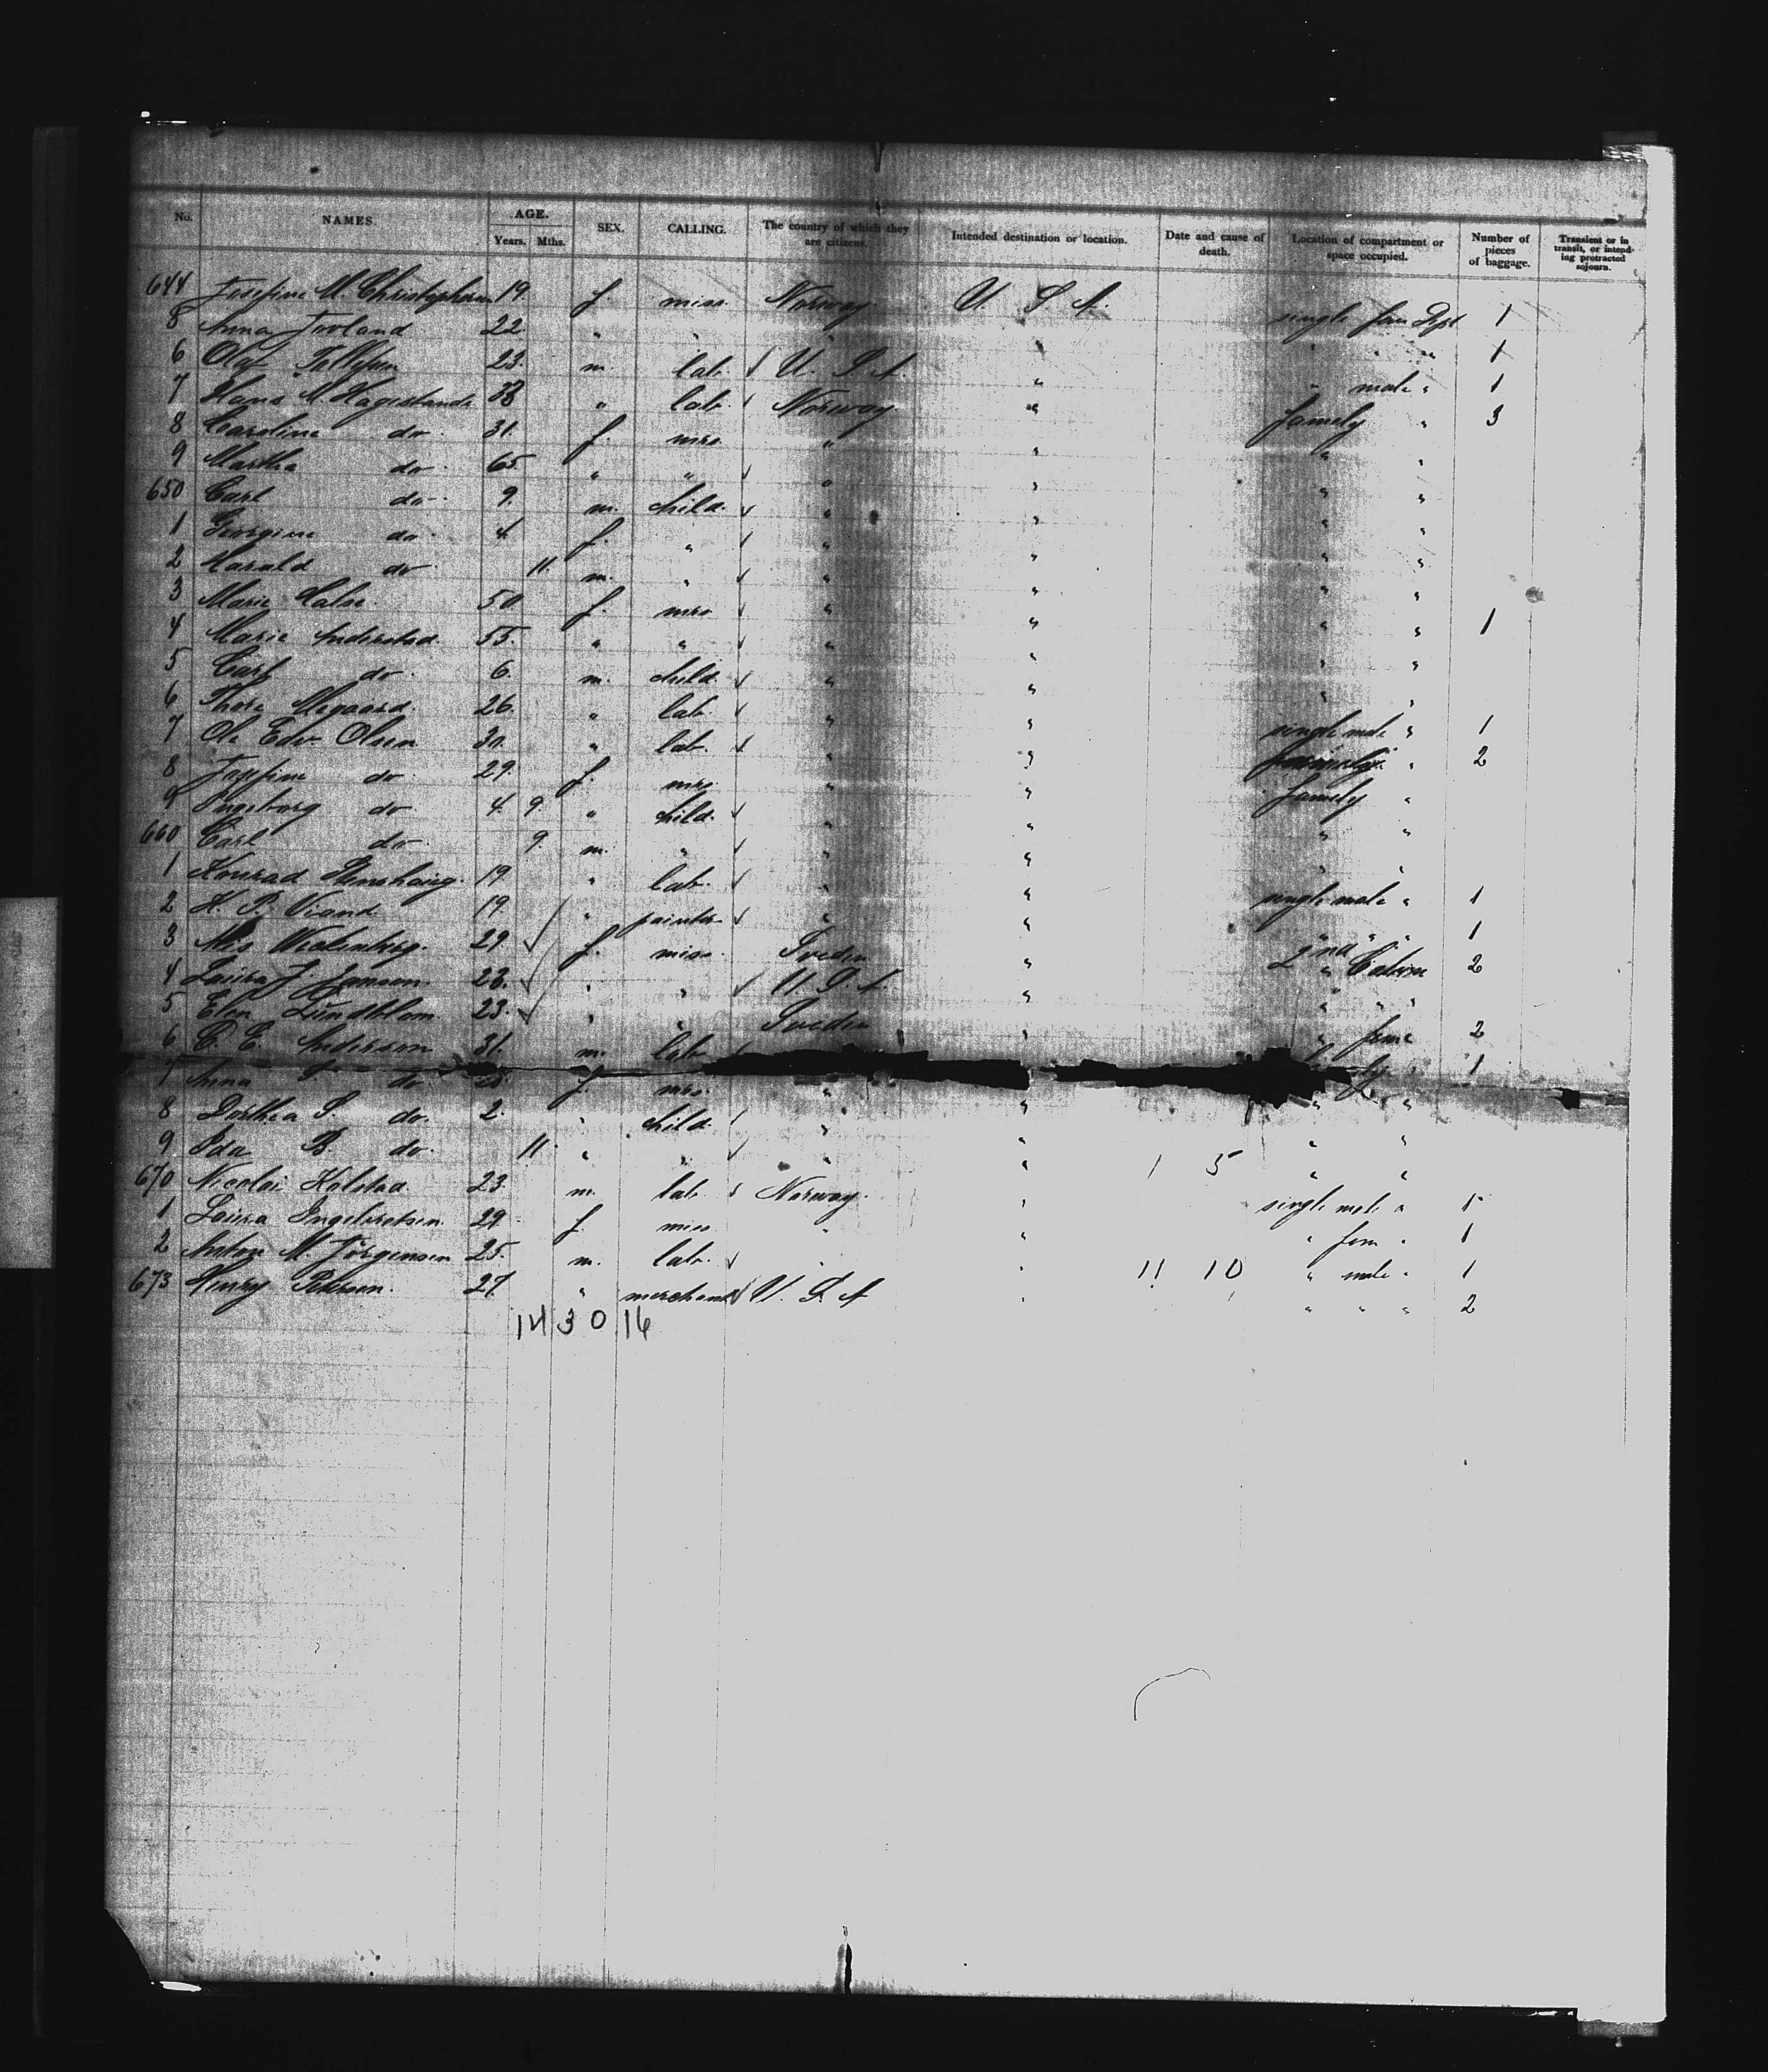 No. NAMES AGE. Years. Mths. SEX. CALLING. The country of which they are citizens. Intended destination or location. Date and cause of death. Location of compartment or space occupied. Number of pieces of baggage. Transient or in transit, or intending protracted sojourn.
644 Josefine M. Christophersen 19. f. miss. Norway U. S. A. single fem Dept 1
8 Anna 22. " " " " " " " 1
6 Olaf Tollefsen 23. m. lab. U. S. A. " " male " 1
7 Hans M. Hagestande 38 " lab. Norway " family " 3
8 Caroline do 31. f. mrs. " " " "
9 Martha do 65. " " " " " "
650 Carl do 9. m. child. " " " "
1 Georgine do 4 f. " " " " "
2 Harald do 11. m. " " " " "
3 Marie 50 f. mrs " " " " 1
4 Marie 55. " " " " " "
5 Carl do 6. m. child. " " " "
6 Thore 26. " lab. " " single male " 1
7 Ole Edv. Olsen 30. " lab. " " " 2
8 Josefine do 29. f. mrs. " " family "
9 Ingeborg do 4. 9. " child. " " " "
660 Carl do 9. m. " " " " "
1 Konrad 19. " lab. " " single male " 1
2 H. P. 19. " painter " " " " " 1
3 29 f. miss. Sveden " 2nd Cabin 2
4 Laura J. Jansen. 28. " " U. S. A. " " " "
5 Elen Lundblom. 23. " " Sveden " " fem 2
6 C. E. Anderson 31. m. lab. " 1
7 Anna do. f. mrs. " " " "
8 Dorthea S. do. 2. " child. " " " "
9 Ida B. do. 11. " " " " 1 5 " "
670 Nicolai Kolstad 23. m. lab. Norway. " single male " 1
1 Laura Ingebretsen. 29. f. miss " " " fem " 1
2 Anton M. Jörgensen 25. m. lab. " " 11 10 " male " 1
673 Henry Peterson. 27. " merchant U. S. A " " " " 2
14 3 0 16